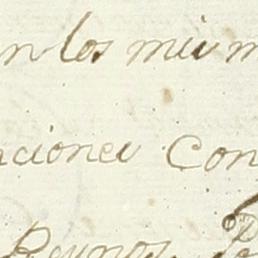 n los mis m
aciones Con
Reynos. P